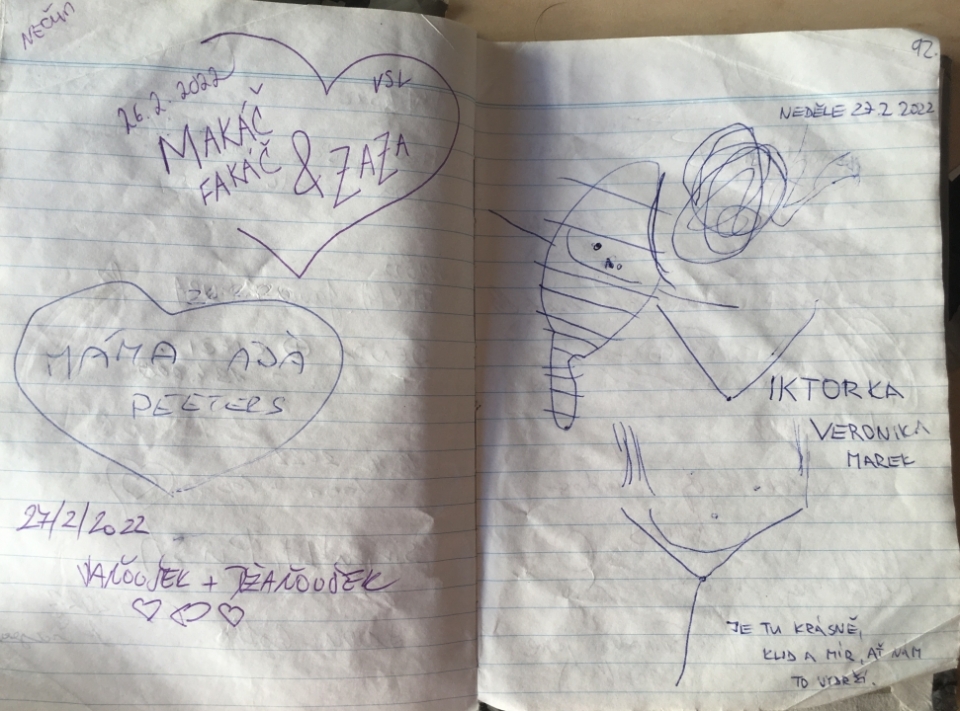 NEČUM
26.2.2022
VSV
MAKÁČ
FAKÁČ & ZAZA
MÁMA ADA
PEETERS
27/2/2022
92.
NEDĚLE 27.2.2022
IKTORKA
VERONIKA
MAREK
JE TU KRÁSNĚ,
KLID A MÍR, AŤ NÁM
TO VYDRŽÍ.